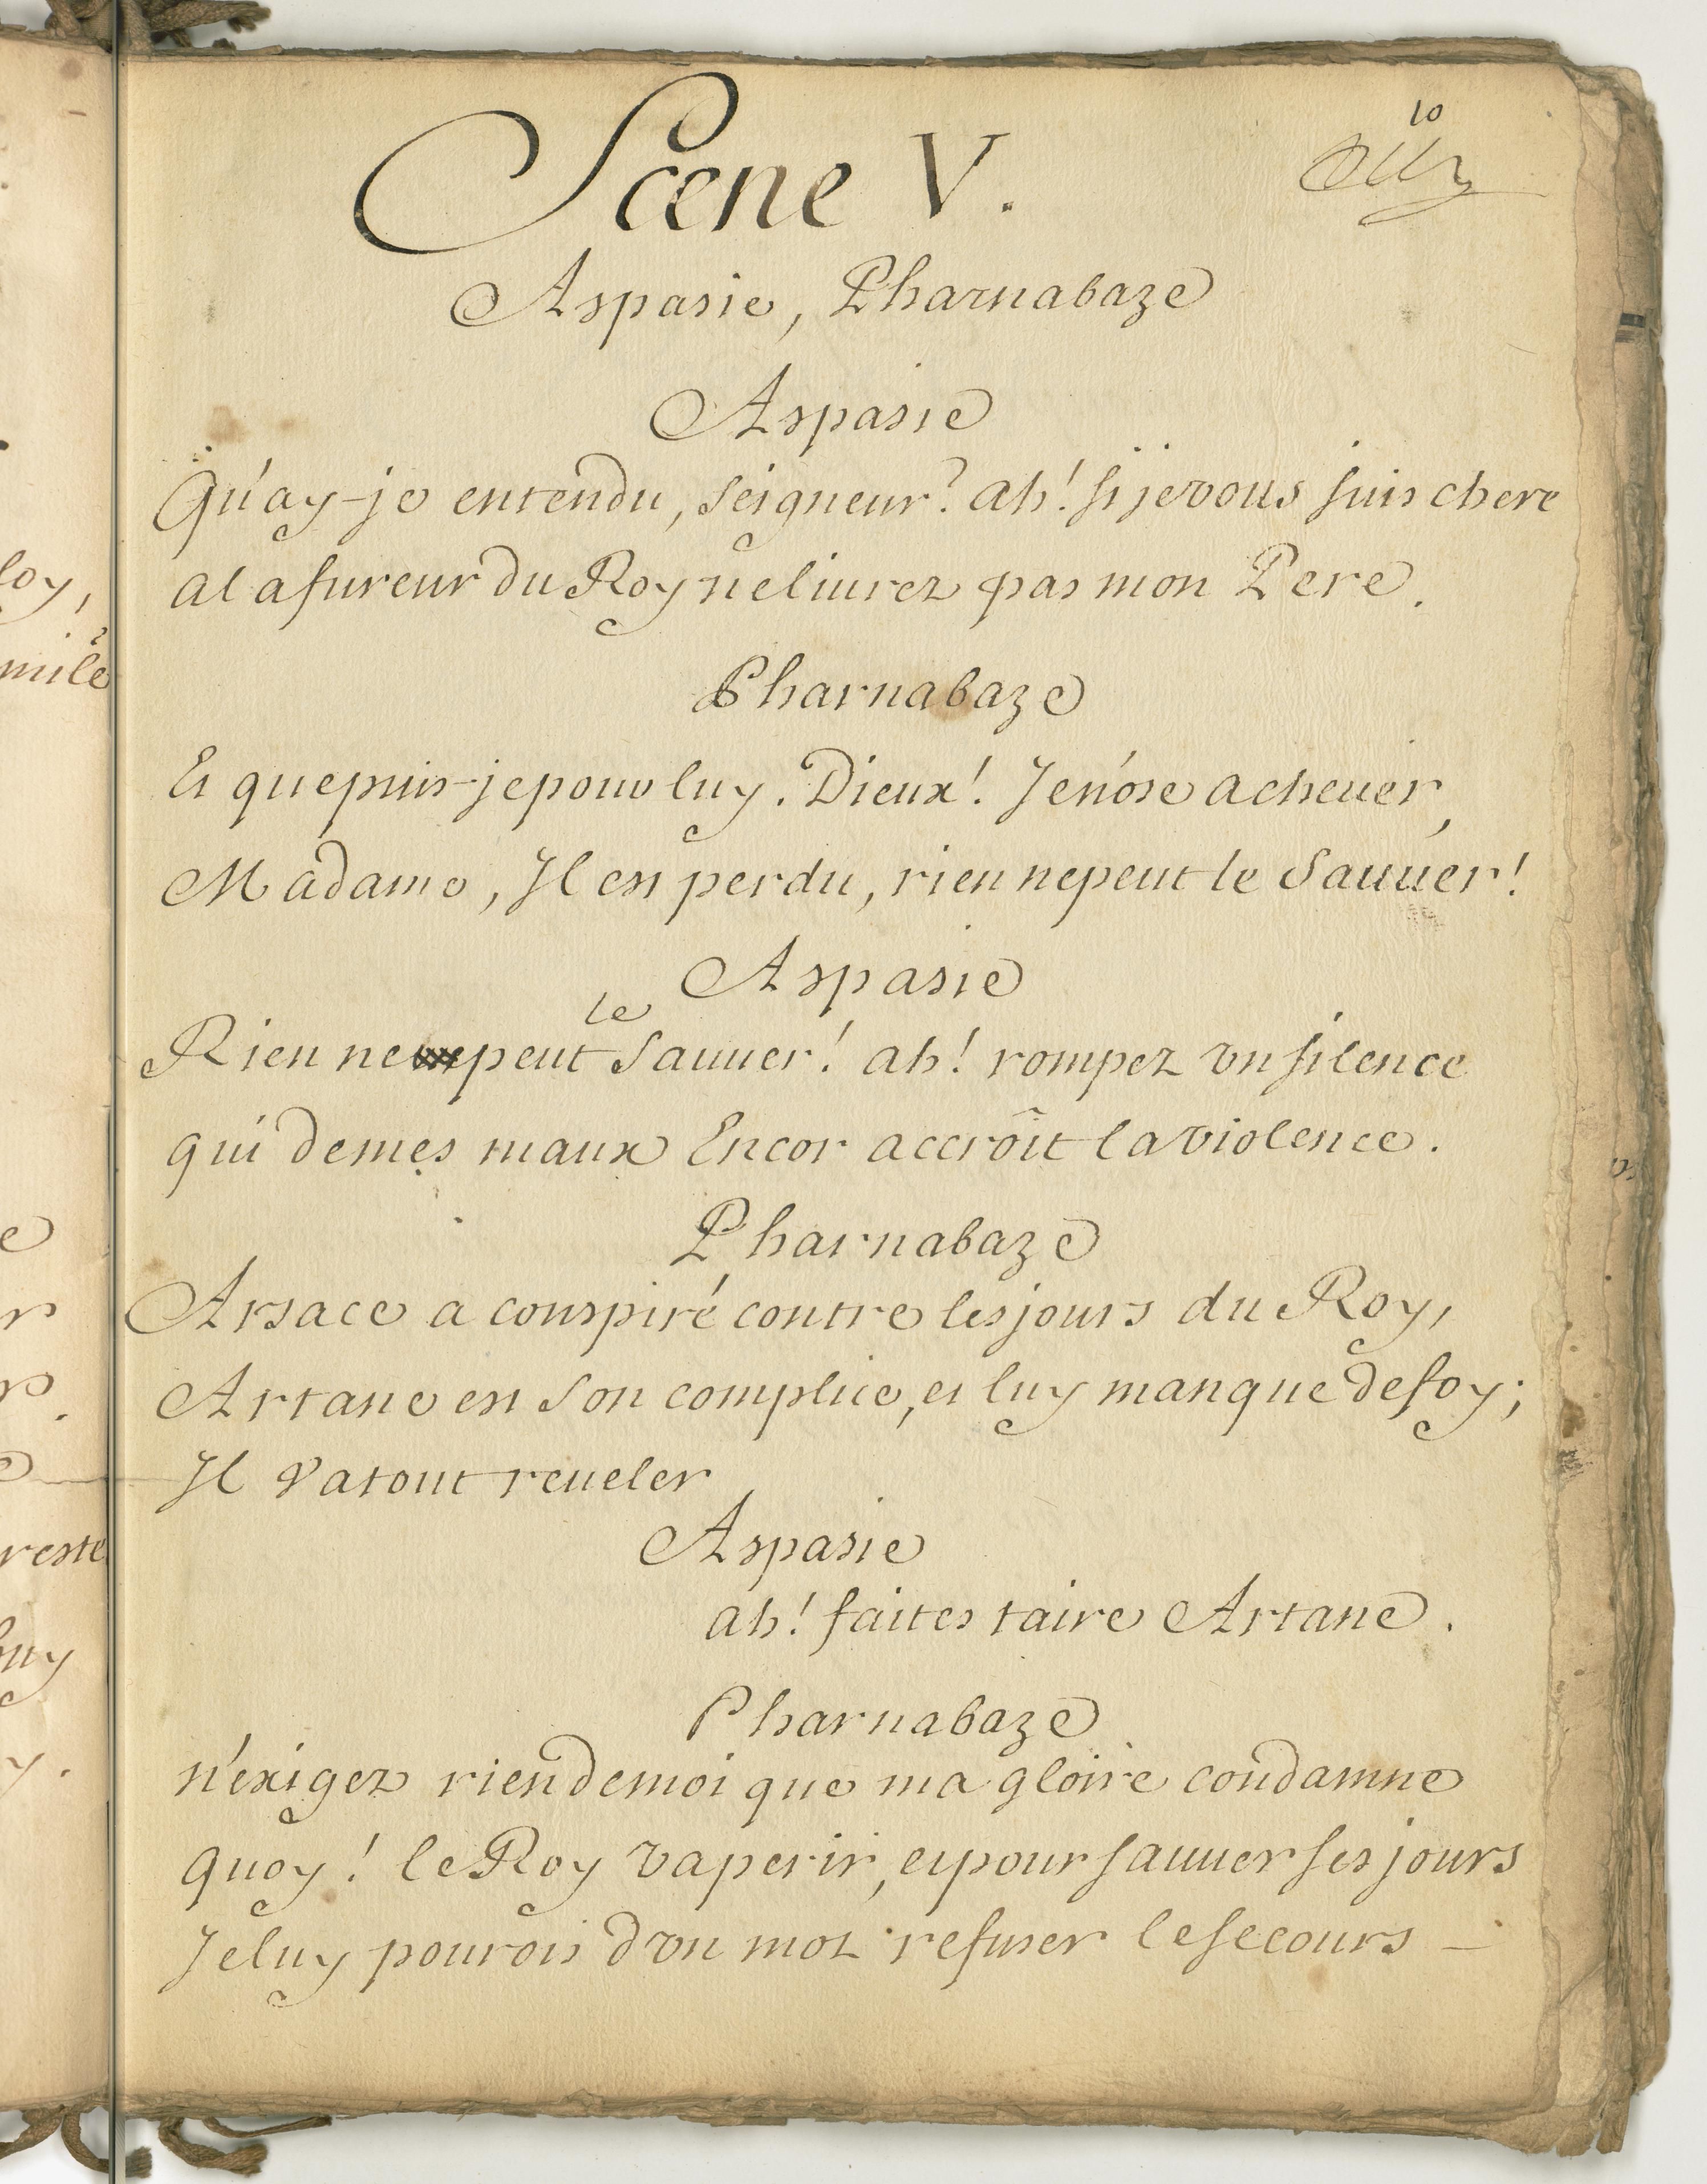 10
Scene V.
Aspasie, Pharnabaze
Aspasie
Qu'ay-je entendu, seigneur? ah! si je vous suis chere
a la fureur du Roy ne liurez pas mon Pere.
Pharnabaze
Et que puis-je pour luy. Dieux! Je n'ose acheuer,
Madame, Il est perdu, rien ne peut le Sauuer!
Aspasie
Rien ne peut le Sauuer! ah! rompez vn silence
qui de mes maux Encor accroît la violence.
Pharnabaze
Arsace a conspiré contre les jours du Roy,
Artane est son complice, et luy manque de foy;
Il va tout reueler
Aspasie
ah! faites taire Artane.
Pharnabaze
n'exigez rien de moi que ma gloire condamne
quoy! le Roy va perir, et pour sauuer ses jours
Je luy pourois d'vn mot refuser le secours –
loy,
mile
reste
luy